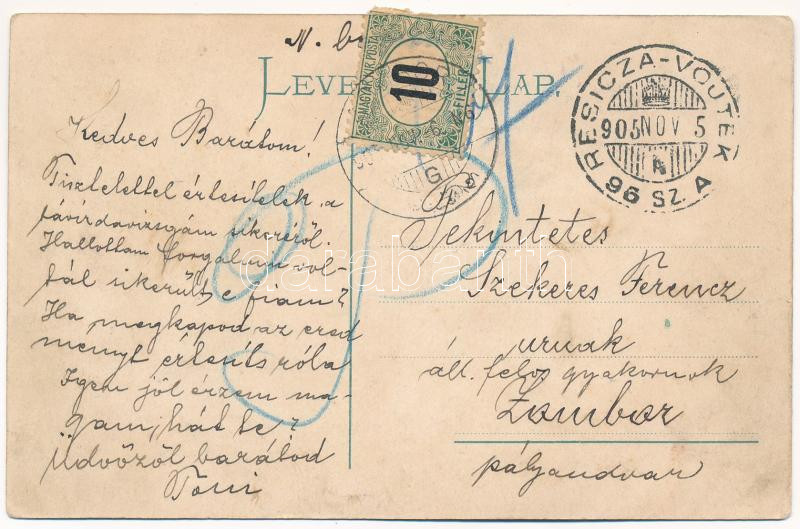 N. b
LEVE LAP.
MAGYAR KIR. POSTA
10
FILLÉR
RESICZA-VOJTEK
905 NOV 5
A
96 SZ. A
G
Kedves Barátom!
Tisztelettel értesítelek a
távirdavizsgám sikeréről.
Hallottam forgalmin vol-
tál sikerült e fiam?
Ha megkapod az ered
ményt értesíts róla
Igen jól érzem ma-
gam, hát te?
Üdvözöl barátod
Toni
Tekintetes
Szekeres Ferencz
urnak
áll. felvs gyakornok
Zombor
pályaudvar
darabanth